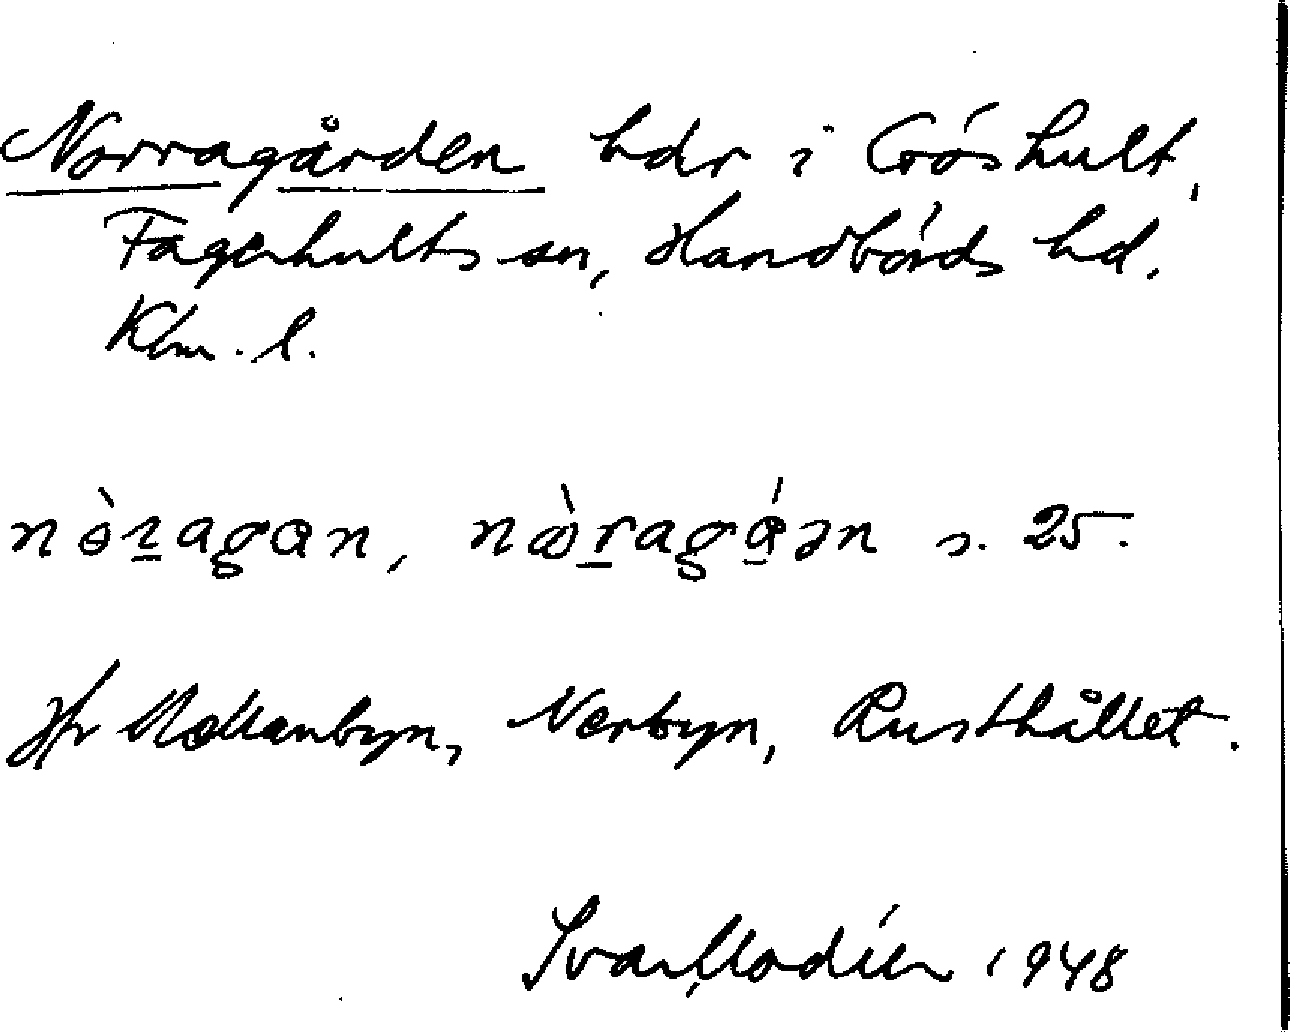 Norragården hdr i Gröshult,
Fagerhults sn, Handbörds hd.
Klm. l.
nòragan, n ə n s. 25.
Jfr Mellanbyn, Nerbyn, Rusthållet.
Ivar Modéer 1948